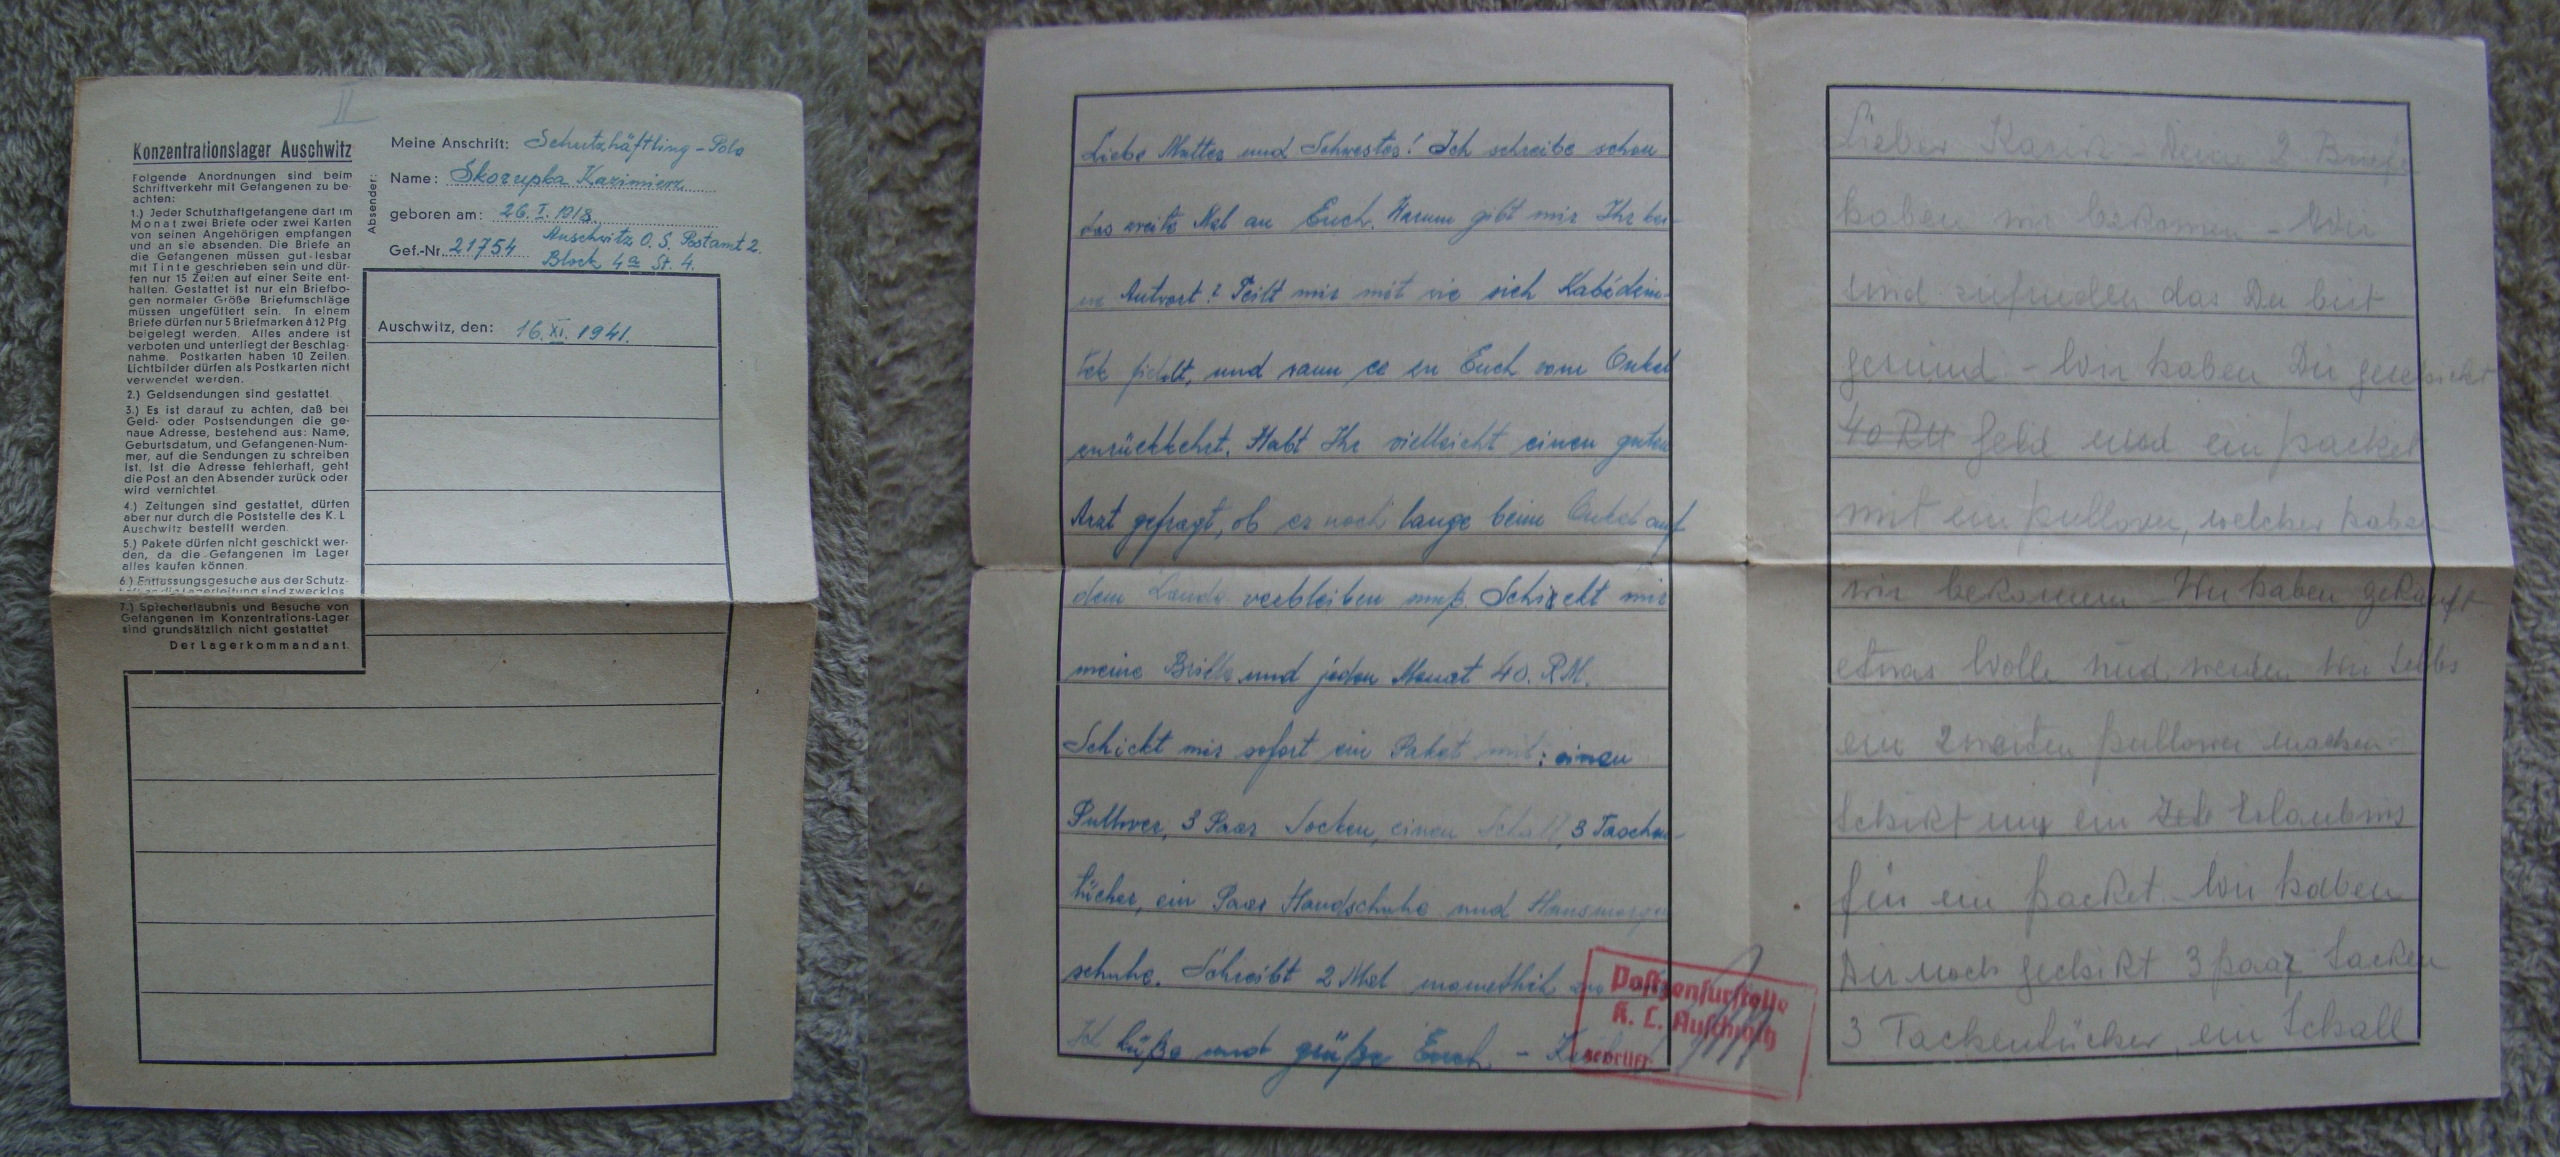 II
Konzentrationslager Auschwitz
Folgende Anordnungen sind beim
Schriftverkehr mit Gefangenen zu be-
achten:
1.) Jeder Schutzhaftgefangene darf im
Monat zwei Briefe oder zwei Karten
von seinen Angehörigen empfangen
und an sie absenden. Die Briefe an
die Gefangenen müssen gut lesbar
mit Tinte geschrieben sein und dür-
fen nur 15 Zeilen auf einer Seite ent-
halten. Gestattet ist nur ein Briefbo-
gen normaler Größe Briefumschläge
müssen ungefüttert sein. In einem
Briefe dürfen nur 5 Briefmarken à 12 Pfg
beigelegt werden. Alles andere ist
verboten und unterliegt der Beschlag-
nahme. Postkarten haben 10 Zeilen.
Lichtbilder dürfen als Postkarten nicht
verwendet werden.
2.) Geldsendungen sind gestattet
3.) Es ist darauf zu achten, daß bei
Geld- oder Postsendungen die ge-
naue Adresse, bestehend aus: Name,
Geburtsdatum, und Gefangenen-Num-
mer, auf die Sendungen zu schreiben
ist. Ist die Adresse fehlerhaft, geht
die Post an den Absender zurück oder
wird vernichtet
4.) Zeitungen sind gestattet, dürfen
aber nur durch die Poststelle des K. L
Auschwitz bestellt werden.
5.) Pakete dürfen nicht geschickt wer-
den, da die Gefangenen im Lager
alles kaufen können.
6.) Entlassungsgesuche aus der Schutz-
haft an die Lagerleitung sind zwecklos
7.) Sprecherlaubnis und Besuche von
Gefangenen im Konzentrations-Lager
sind grundsätzlich nicht gestattet
Der Lagerkommandant.
Absender:
Meine Anschrift: Schutzhäftling - Pole
Name: Skorupka Kazimierz
geboren am: 26. I. 1918.
Gef.-Nr. 21754 Auschwitz O. S. Postamt 2.
Block 4a St. 4.
Auschwitz, den: 16. XI. 1941.
Liebe Mutter und Schwester! Ich schreibe schon
das zweite Mal an Euch. Warum gibt mir Ihr kei-
ne Antwort? Teilt mir mit wie sich
und wann es zu Euch vom Onkel
zurückkehrt. Habt Ihr vielleicht einen guten
Arzt gefragt, ob er noch lange beim Onkel auf
dem Lande verbleiben muß. Schickt mir
meine Brille und jeden Monat 40. RM.
Schickt mir sofort ein Paket mit: einen
Pullover, 3 Paar Socken, einen Schall, 3 Taschen-
tücher, ein Paar Handschuhe und
schuhe. Schreibt 2 Mal
Ich küße und grüße Euch. -
Postzensurstelle
K. L. Auschwitz
geprüft
Lieber Kazix - Deine 2 Briefe
haben wir bekomen - Wir
sind sufrieden das Du bist
gesund - Wir haben Dir geschickt
40 RM Geld und ein packet
mit ein pullover, welcher haben
wir bekomen Wir haben gekauft
etwas Wolle und werden wir
ein zweiten pullover machen -
Schikt uns ein Erlaubnis
für ein packet. - Wir haben
Dir noch geschikt 3 paar Socken
3 Tackentücker, ein Schall